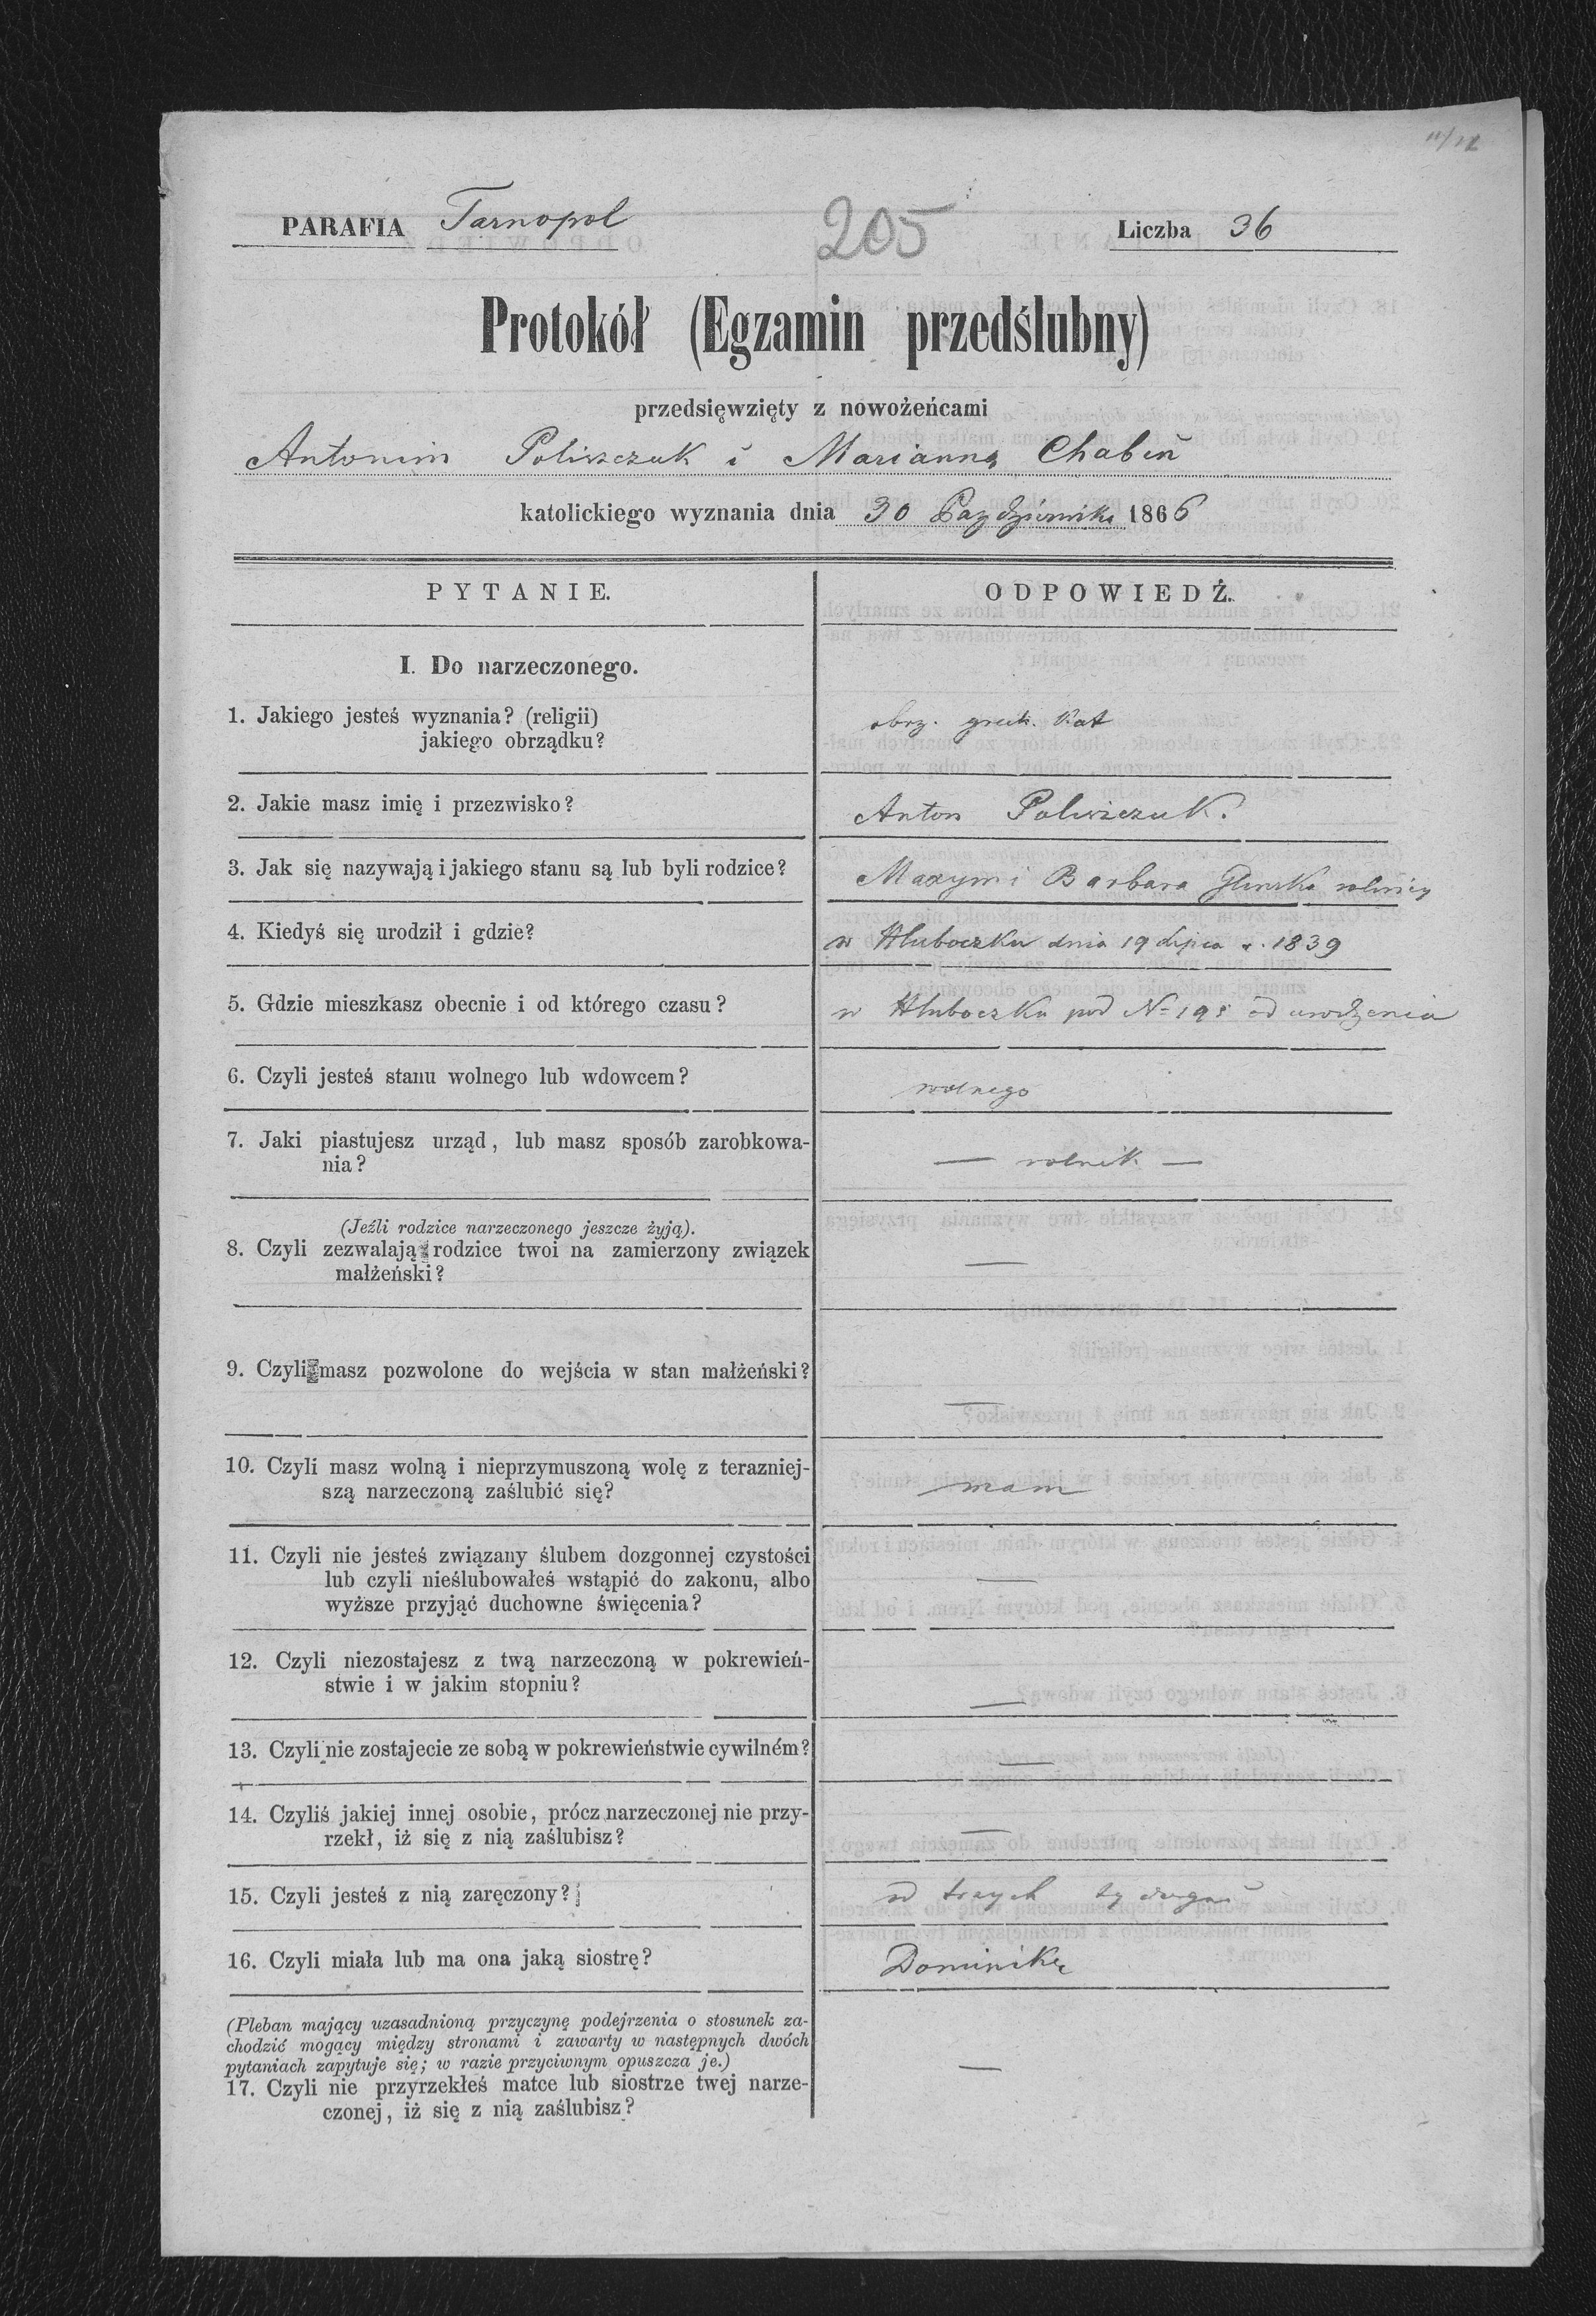 11/11
PARAFIA Tarnopol
205
Liczba 36
Protokół (Egzamin przedślubny)
przedsięwzięty z nowożeńcami
Antonim Poliszczuk i Marianną Chabin
katolickiego wyznania dnia 30 Października 1866
PYTANIE.
ODPOWIEDŹ.
I. Do narzeczonego.
1. Jakiego jesteś wyznania? (religii)
jakiego obrządku?
obrz. greck. Kat
2. Jakie masz imię i przezwisko?
Anton Poliszczuk.
3. Jak się nazywają i jakiego stanu są lub byli rodzice?
Maxym i Barbara rolnicy
4. Kiedyś się urodził i gdzie?
w Hluboczku dnia 19 Lipca r. 1839
5. Gdzie mieszkasz obecnie i od którego czasu?
w Hluboczku pod N= 195 od urodzenia
6. Czyli jesteś stanu wolnego lub wdowcem?
wolnego
7. Jaki piastujesz urząd, lub masz sposób zarobkowa-
nia?
— rolnik —
(Jeźli rodzice narzeczonego jeszcze żyją).
8. Czyli zezwalają rodzice twoi na zamierzony związek
małżeński?
—
9. Czyli masz pozwolone do wejścia w stan małżeński?
—
10. Czyli masz wolną i nieprzymuszoną wolę z terazniej-
szą narzeczoną zaślubić się?
mam
11. Czyli nie jesteś związany ślubem dozgonnej czystości
lub czyli nieślubowałeś wstąpić do zakonu, albo
wyższe przyjąć duchowne święcenia?
—
12. Czyli niezostajesz z twą narzeczoną w pokrewień-
stwie i w jakim stopniu?
—
13. Czyli nie zostajecie ze sobą w pokrewieństwie cywilném?
—
14. Czyliś jakiej innej osobie, prócz narzeczonej nie przy-
rzekł, iż się z nią zaślubisz?
—
15. Czyli jesteś z nią zaręczony?
od trzech tygodni
16. Czyli miała lub ma ona jaką siostrę?
Dominikę
(Pleban mający uzasadnioną przyczynę podejrzenia o stosunek za-
chodzić mogący między stronami i zawarty w następnych dwóch
pytaniach zapytuje się; w razie przyciwnym opuszcza je.)
17. Czyli nie przyrzekłeś matce lub siostrze twej narze-
czonej, iż się z nią zaślubisz?
—